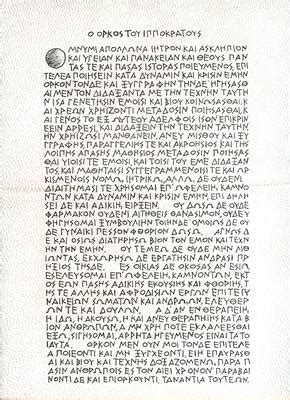 Ο ΟΡΚΟΣ ΤΟΥ ΙΠΠΟΚΡΑΤΟΥΣ
ΟΜΝΥΜΙ ΑΠΟΛΛΩΝΑ ΙΗΤΡΟΝ ΚΑΙ ΑΣΚΛΗΠΙΟΝ
ΚΑΙ ΥΓΕΙΑΝ ΚΑΙ ΠΑΝΑΚΕΙΑΝ ΚΑΙ ΘΕΟΥΣ ΠΑΝ
ΤΑΣ ΤΕ ΚΑΙ ΠΑΣΑΣ ΙΣΤΟΡΑΣ ΠΟΙΕΥΜΕΝΟΣ, ΕΠΙ
ΤΕΛΕΑ ΠΟΙΗΣΕΙΝ ΚΑΤΑ ΔΥΝΑΜΙΝ ΚΑΙ ΚΡΙΣΙΝ ΕΜΗΝ
ΟΡΚΟΝ ΤΟΝΔΕ ΚΑΙ ΞΥΓΓΡΑΦΗΝ ΤΗΝΔΕ· ΗΓΗΣΑΣΘ
ΑΙ ΜΕΝ ΤΟΝ ΔΙΔΑΞΑΝΤΑ ΜΕ ΤΗΝ ΤΕΧΝΗΝ ΤΑΥΤΗ
Ν ΙΣΑ ΓΕΝΕΤΗΣΙΝ ΕΜΟΙΣΙ ΚΑΙ ΒΙΟΥ ΚΟΙΝΩΣΑΣΘΑΙ, Κ
ΑΙ ΧΡΕΩΝ ΧΡΗΙΖΟΝΤΙ ΜΕΤΑΔΟΣΙΝ ΠΟΙΗΣΑΣΘΑΙ, Κ
ΑΙ ΓΕΝΟΣ ΤΟ ΕΞ ΩΥΤΕΟΥ ΑΔΕΛΦΟΙΣ ΙΣΟΝ ΕΠΙΚΡΙΝ
ΕΕΙΝ ΑΡΡΕΣΙ, ΚΑΙ ΔΙΔΑΞΕΙΝ ΤΗΝ ΤΕΧΝΗΝ ΤΑΥΤΗΝ,
ΗΝ ΧΡΗΙΖΩΣΙ ΜΑΝΘΑΝΕΙΝ, ΑΝΕΥ ΜΙΣΘΟΥ ΚΑΙ ΞΥΓ
ΓΡΑΦΗΣ, ΠΑΡΑΓΓΕΛΙΗΣ ΤΕ ΚΑΙ ΑΚΡΟΗΣΙΟΣ ΚΑΙ ΤΗΣ
ΛΟΙΠΗΣ ΑΠΑΣΗΣ ΜΑΘΗΣΙΟΣ ΜΕΤΑΔΟΣΙΝ ΠΟΙΗΣΑΣ
ΘΑΙ ΥΙΟΙΣΙ ΤΕ ΕΜΟΙΣΙ, ΚΑΙ ΤΟΙΣΙ ΤΟΥ ΕΜΕ ΔΙΔΑΞΑΝ
ΤΟΣ, ΚΑΙ ΜΑΘΗΤΑΙΣΙ ΣΥΓΓΕΓΡΑΜΜΕΝΟΙΣΙ ΤΕ ΚΑΙ ΩΡ
ΚΙΣΜΕΝΟΙΣ ΝΟΜΩι ΙΗΤΡΙΚΩι, ΑΛΛΩι ΔΕ ΟΥΔΕΝΙ.
ΔΙΑΙΤΗΜΑΣΙ ΤΕ ΧΡΗΣΟΜΑΙ ΕΠ ΩΦΕΛΕΙΗι ΚΑΜΝΟ
ΝΤΩΝ ΚΑΤΑ ΔΥΝΑΜΙΝ ΚΑΙ ΚΡΙΣΙΝ ΕΜΗΝ, ΕΠΙ ΔΗΛΗ
ΣΕΙ ΔΕ ΚΑΙ ΑΔΙΚΙΗι ΕΙΡΞΕΙΝ. ΟΥ ΔΩΣΩ ΔΕ ΟΥΔΕ
ΦΑΡΜΑΚΟΝ ΟΥΔΕΝΙ ΑΙΤΗΘΕΙΣ ΘΑΝΑΣΙΜΟΝ, ΟΥΔΕ Υ
ΦΗΓΗΣΟΜΑΙ ΞΥΜΒΟΥΛΙΗΝ ΤΟΙΗΝΔΕ· ΟΜΟΙΩΣ ΔΕ ΟΥ
ΔΕ ΓΥΝΑΙΚΙ ΠΕΣΣΟΝ ΦΘΟΡΙΟΝ ΔΩΣΩ. ΑΓΝΩΣ Δ
Ε ΚΑΙ ΟΣΙΩΣ ΔΙΑΤΗΡΗΣΩ ΒΙΟΝ ΤΟΝ ΕΜΟΝ ΚΑΙ ΤΕΧΝΗ
Ν ΤΗΝ ΕΜΗΝ. ΟΥ ΤΕΜΕΩ ΔΕ ΟΥΔΕ ΜΗΝ ΛΙΘΙΩΝ
ΤΑΣ, ΕΚΧΩΡΗΣΩ ΔΕ ΕΡΓΑΤΗΙΣΙΝ ΑΝΔΡΑΣΙ ΠΡ
ΗΞΙΟΣ ΤΗΣΔΕ. ΕΣ ΟΙΚΙΑΣ ΔΕ ΟΚΟΣΑΣ ΑΝ ΕΣΙΩ
ΕΣΕΛΕΥΣΟΜΑΙ ΕΠ ΩΦΕΛΕΙΗι ΚΑΜΝΟΝΤΩΝ, ΕΚΤ
ΟΣ ΕΩΝ ΠΑΣΗΣ ΑΔΙΚΙΗΣ ΕΚΟΥΣΙΗΣ ΚΑΙ ΦΘΟΡΙΗΣ, ΤΗΣ
ΤΕ ΑΛΛΗΣ ΚΑΙ ΑΦΡΟΔΙΣΙΩΝ ΕΡΓΩΝ ΕΠΙ ΤΕ ΓΥ
ΝΑΙΚΕΙΩΝ ΣΩΜΑΤΩΝ ΚΑΙ ΑΝΔΡΩιΩΝ, ΕΛΕΥΘΕΡ
ΩΝ ΤΕ ΚΑΙ ΔΟΥΛΩΝ. Α Δ ΑΝ ΕΝ ΘΕΡΑΠΕΙΗι
Η ΙΔΩ, Η ΑΚΟΥΣΩ, Η ΚΑΙ ΑΝΕΥ ΘΕΡΑΠΗΙΗΣ ΚΑΤΑ Β
ΙΟΝ ΑΝΘΡΩΠΩΝ, Α ΜΗ ΧΡΗ ΠΟΤΕ ΕΚΛΑΛΕΕΣΘΑΙ
ΕΞΩ, ΣΙΓΗΣΟΜΑΙ, ΑΡΡΗΤΑ ΗΓΕΥΜΕΝΟΣ ΕΙΝΑΙ ΤΑ ΤΟ
ΙΑΥΤΑ. ΟΡΚΟΝ ΜΕΝ ΟΥΝ ΜΟΙ ΤΟΝΔΕ ΕΠΙΤΕΛΕ
Α ΠΟΙΕΟΝΤΙ ΚΑΙ ΜΗ ΞΥΓΧΕΟΝΤΙ, ΕΙΗ ΕΠΑΥΡΑΣΘ
ΑΙ ΚΑΙ ΒΙΟΥ ΚΑΙ ΤΕΧΝΗΣ ΔΟΞΑΖΟΜΕΝΩι ΠΑΡΑ Π
ΑΣΙΝ ΑΝΘΡΩΠΟΙΣ ΕΣ ΤΟΝ ΑΙΕΙ ΧΡΟΝΟΝ· ΠΑΡΑΒΑΙ
ΝΟΝΤΙ ΔΕ ΚΑΙ ΕΠΙΟΡΚΟΥΝΤΙ, ΤΑΝΑΝΤΙΑ ΤΟΥΤΕΩΝ.